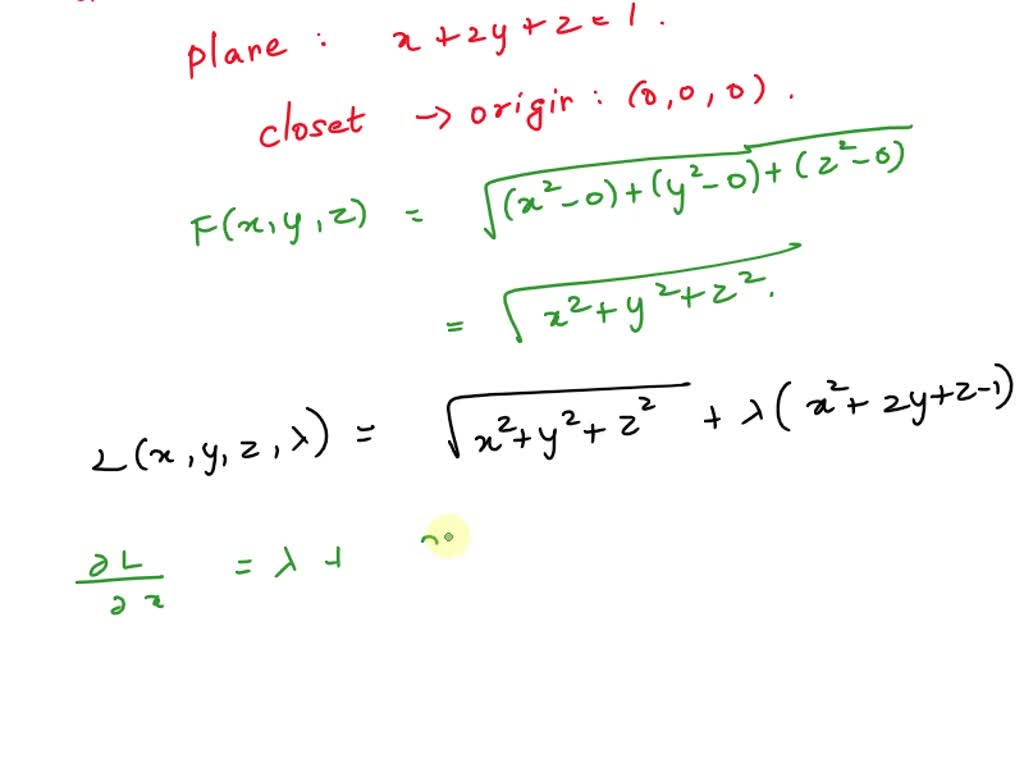 plane : x + 2y + z = 1 .
closet → origin : (0, 0, 0) .
F(x, y, z) = √(x²-0)+(y²-0)+(z²-0)
= √x²+y²+z² .
L(x, y, z, λ) = √x²+y²+z² + λ(x²+2y+z-1)
∂L/∂x = λ +